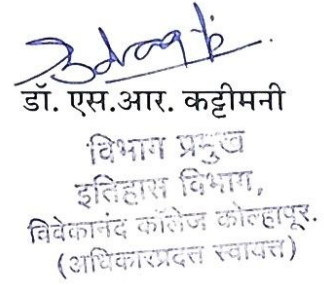 डॉ. एस.आर. कट्टीमनी
विभाग प्रमुख
इतिहास विभाग,
विवेकानंद कॉलेज कोल्हापूर.
(अधिकारप्रदत्त स्वायत्त)